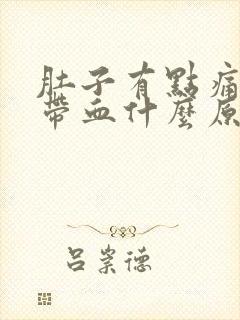 肚子有點痛
帶血什麼原
呂崇德